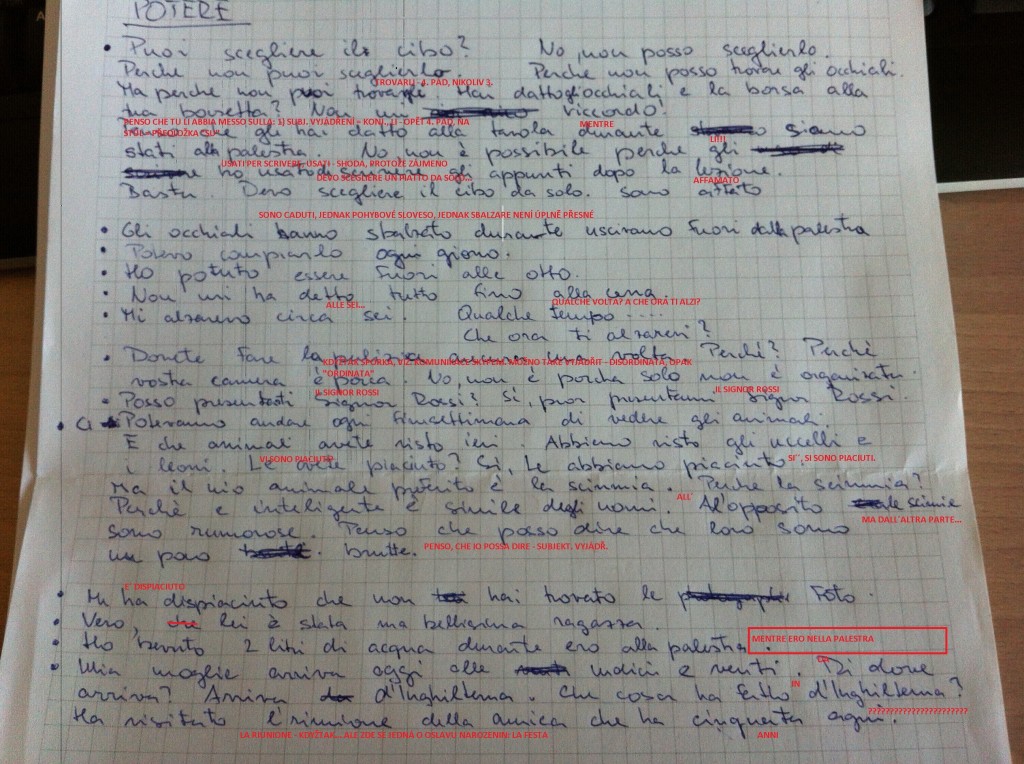 POTERE
• Puoi scegliere il cibo? No, non posso sceglierlo.
Perche non puoi sceglierlo. Perche non posso trovare gli occhiali
TROVARLI - 4. PÁD, NIKOLIV 3.
Ma perche non puoi trovargli Hai datto gli occhiali e la borsa alla
tua borsetta? riccordo!
PENSO CHE TU LI ABBIA MESSO SULLA: 1) SUBJ. VYJÁDŘENÍ - KONJ., LI - OPĚT 4. PÁD, NA
MENTRE
che gli hai datto alla tavola durante siamo
LI!!!
stati alla palestra. No non è possibile perche gli
USATI PER SCRIVERE, USATI - SHODA, PROTOŽE ZÁJMENO
ho usato di scrivere gli appunti dopo la lezione.
DEVO SCEGLIERE UN PIATTO DA SOLO...
AFFAMATO
Basta. Devo scegliere il cibo da solo. sono
SONO CADUTI, JEDNAK POHYBOVÉ SLOVESO, JEDNAK SBALZARE NENÍ ÚPLNĚ PŘESNÉ
• Gli occhiali hanno sbalzato durante uscivano fuori dalla palestra
• Potevo comprarlo ogni giorno.
• Ho potuto essere fuori alle otto.
• Non mi ha detto tutto fino alla cena.
ALLE SEI...
QUALCHE VOLTA? A CHE ORA TI ALZI?
• Mi alzarevo circa sei. Qualche tempo ....
Che ora ti alzarevi?
• Dovete fare la pulizia ancora una volta Perché? Perchè
KDYŽTAK SPORKA, VIZ. KOMUNIKACE SKYPEM. MOŽNO TAKÉ VYJÁDŘIT - DISORDINATA, OPAK
"ORDINATA"
vostra camera è porca. No, non è porcha solo non è organizzata.
IL SIGNOR ROSSI
IL SIGNOR ROSSI
• Posso presentarti Signor Rossi? Si, puoi presentarmi Signor Rossi.
• Ci Potevamo andare ogni finesettimana di vedere gli animali.
E che animali avete visto ieri. Abbiamo visto gli uccelli e
VI SONO PIACIUTO
SI´, SI SONO PIACIUTI.
i leoni. Le avete piaciuto? Si, Le abbiamo piacciuto.
Ma il mio animale preferito è la scimmia. Perche la scimmia?
ALL´
Perchè è inteligente e simile degli uomi. Al'opposito le scimie
MA DALL´ALTRA PARTE...
sono rumorose. Penso che posso dire che loro sono
un poco brutte.
PENSO, CHE IO POSSA DIRE - SUBJEKT. VYJÁDŘ.
E´ DISPIACIUTO
• Mi ha dispiaciuto che non hai trovato le foto.
• Vero, che lei è stata ma bellissima ragazza.
• Ho bevuto 2 litri di acqua durante ero alla palestra.
MENTRE ERO NELLA PALESTRA
• Mia moglie arriva oggi alle undici e venti. Di dove
IN
arriva? Arriva d'Inghilterra. Che cosa ha fatto d'Inghilterra?
???????????????????????
Ha visitato l'riunione della amica che ha cinquanta agni.
LA RIUNIONE - KDYŽTAK...ALE ZDE SE JEDNÁ O OSLAVU NAROZENIN: LA FESTA
ANNI